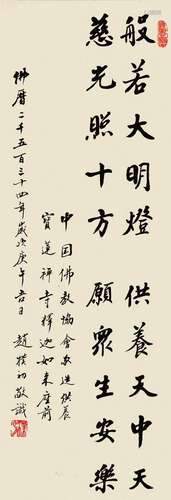 般若大明燈 供養天中天
慈光照十方 願衆生安樂
中国佛教協會敬造供養
寶蓮禅寺釋迦如来座前
佛曆二千五百三十四年歲次庚午吉日
趙樸初敬識